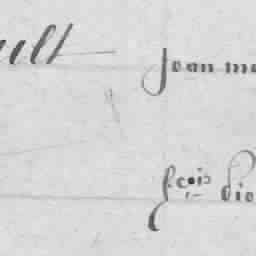 ult Joan ma
fcois Dio